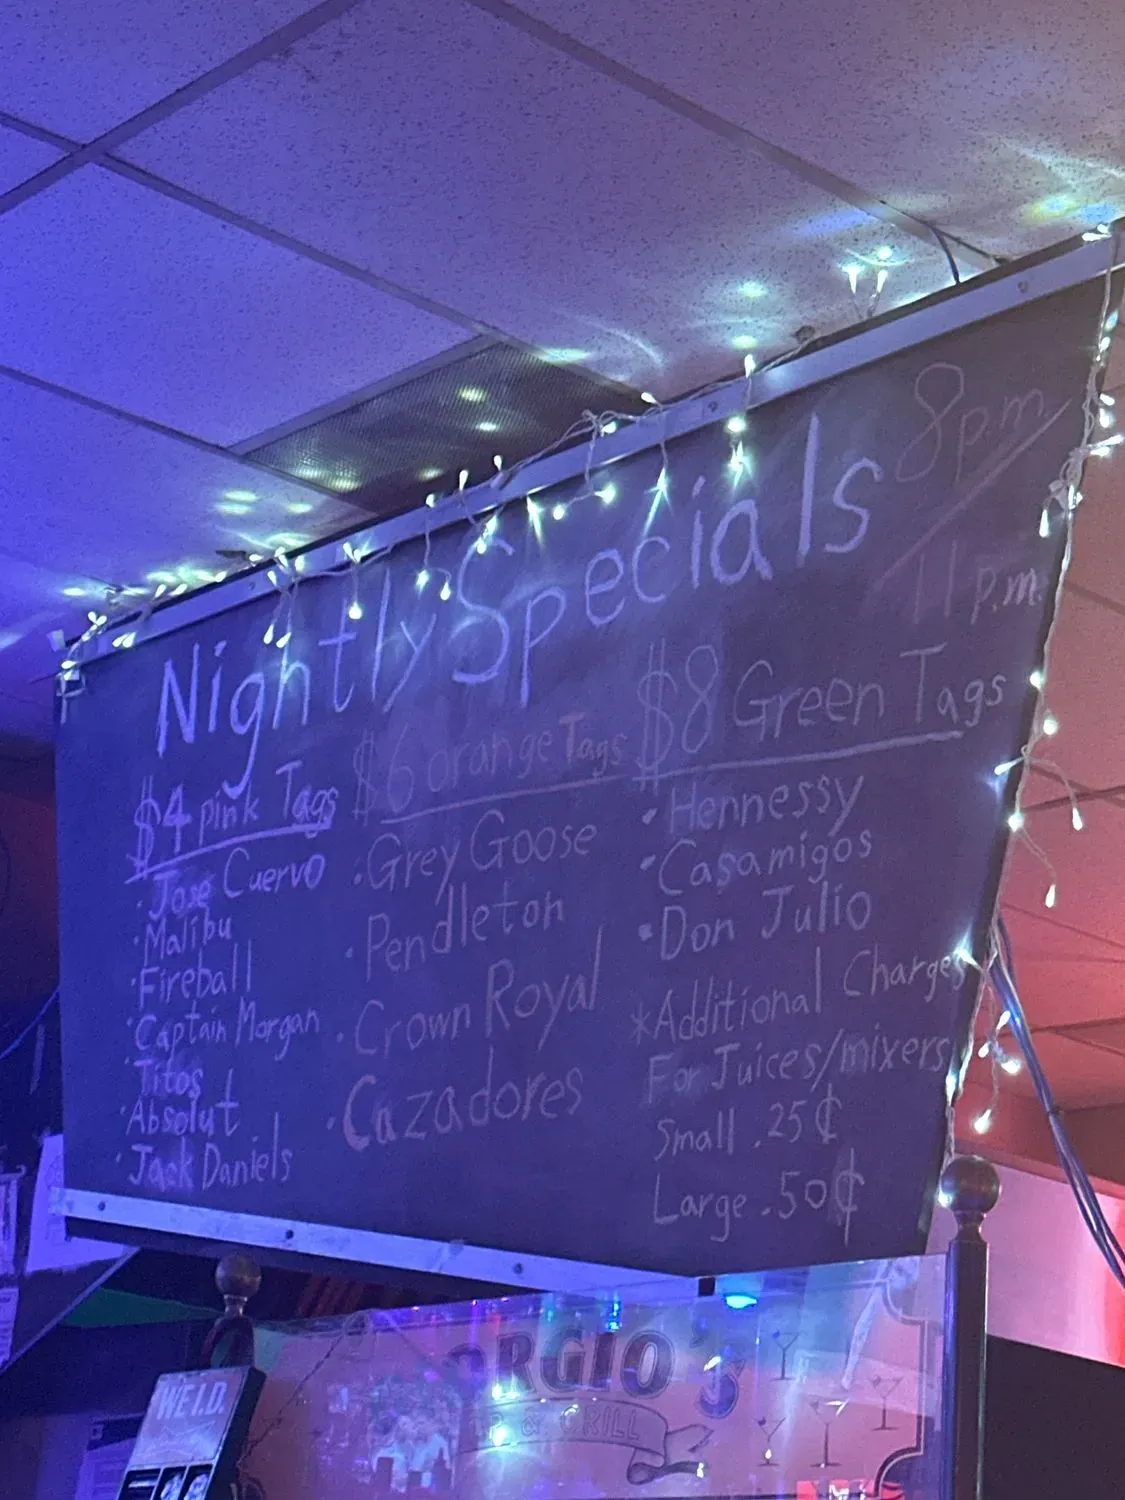 Nightly Specials
8p.m/11p.m.
$4 pink Tags
· Jose Cuervo
· Malibu
· Fireball
· Captain Morgan
· Titos
· Absolut
· Jack Daniels
$6 orange Tags
· Grey Goose
· Pendleton
· Crown Royal
· Cazadores
$8 Green Tags
· Hennessy
· Casamigos
· Don Julio
*Additional Charges
For Juices/mixers
Small .25¢
Large .50¢
ORGIO'S
& GRILL
WE I.D.